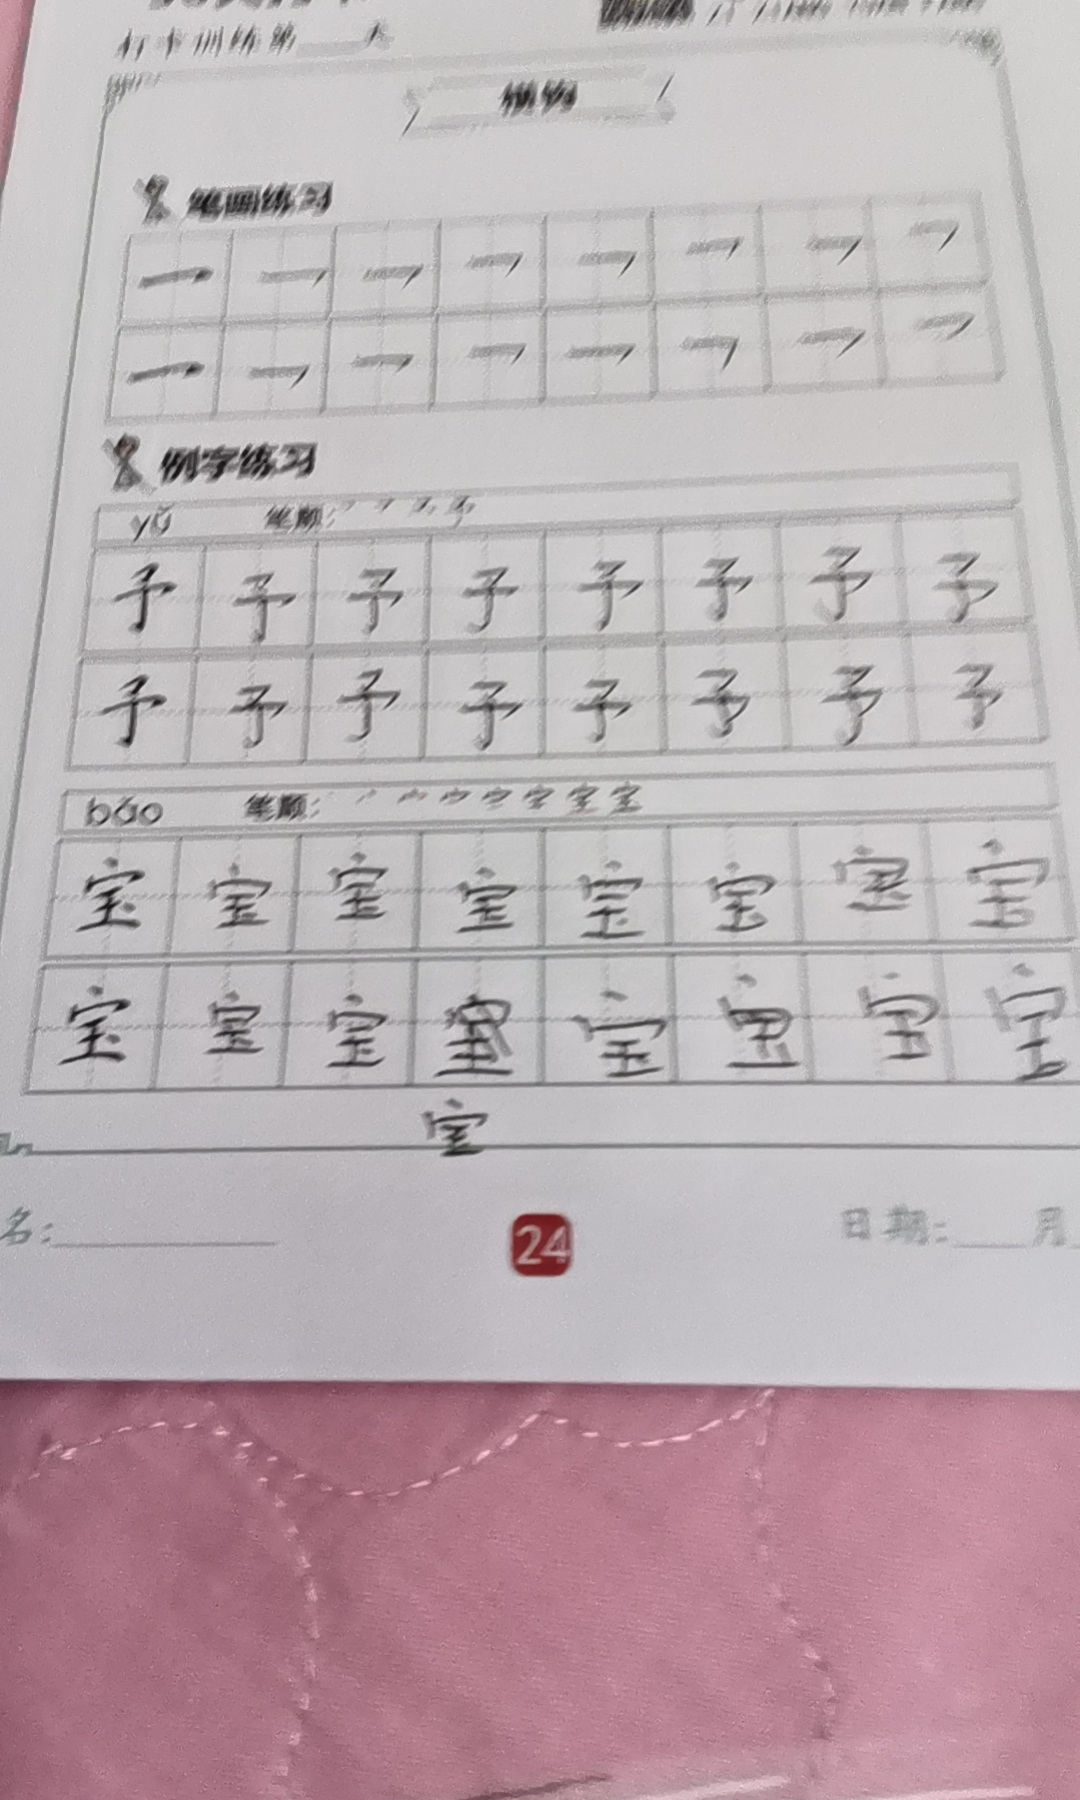 打卡训练第____天
横钩
笔画练习
例字练习
yǔ 笔顺:
予 予 予 予 予 予 予 予
予 予 予 予 予 予 予 予
bǎo 笔顺:
宝 宝 宝 宝 宝 宝 宝 宝
宝 宝 宝 宝 宝 宝 宝
宝
名:____ 24 日期:____月